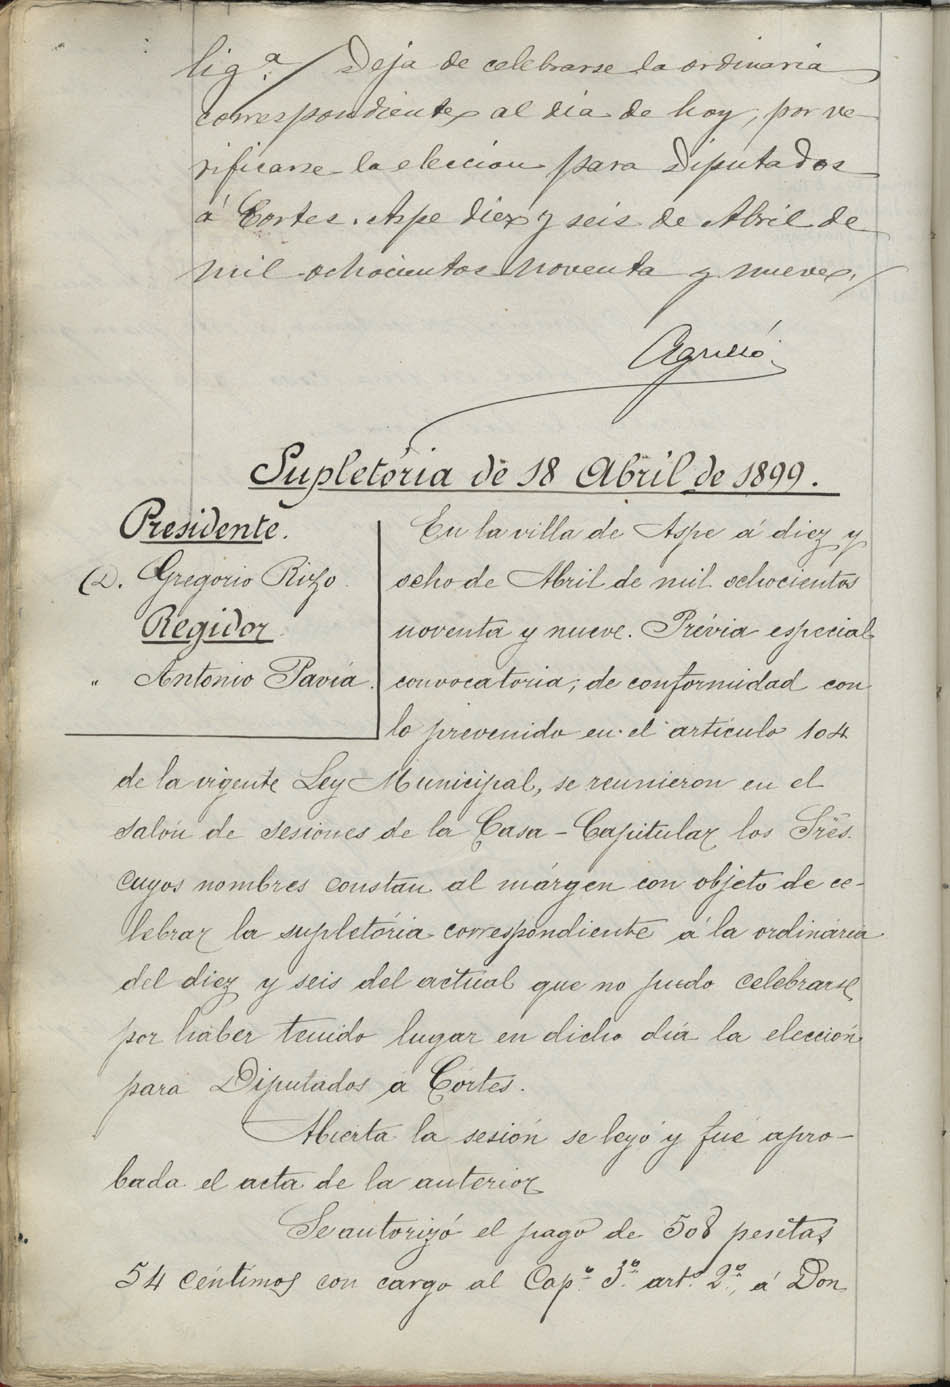 Lig.ª / Deja de celebrarse la ordinaria
correspondiente al dia de hoy, por ve-
rificarse la eleccion para Diputados
á Cortes. Aspe diez y seis de Abril de
mil ochocientos noventa y nueve. /
Supletória de 18 Abril de 1899.
Presidente.
D. Gregorio Rizo
Regidor
" Antonio Pavía.
En la villa de Aspe á diez y
ocho de Abril de mil ochocientos
noventa y nueve. Prévia especial
convocatoria, de conformidad con
lo prevenido en el artículo 104
de la vigente Ley Municipal, se reunieron en el
salón de sesiones de la Casa-Capitular los Sres.
cuyos nombres constan al márgen con objeto de ce-
lebrar la supletória correspondiente á la ordinária
del diez y seis del actual que no pudo celebrarse
por haber tenido lugar en dicho día la elección
para Diputados á Córtes.
Abierta la sesión se leyó y fué apro-
bada el acta de la anterior
Se autorizó el pago de 508 pesetas
54 céntimos con cargo al Cap.º 3.º art.º 2.º, á Don